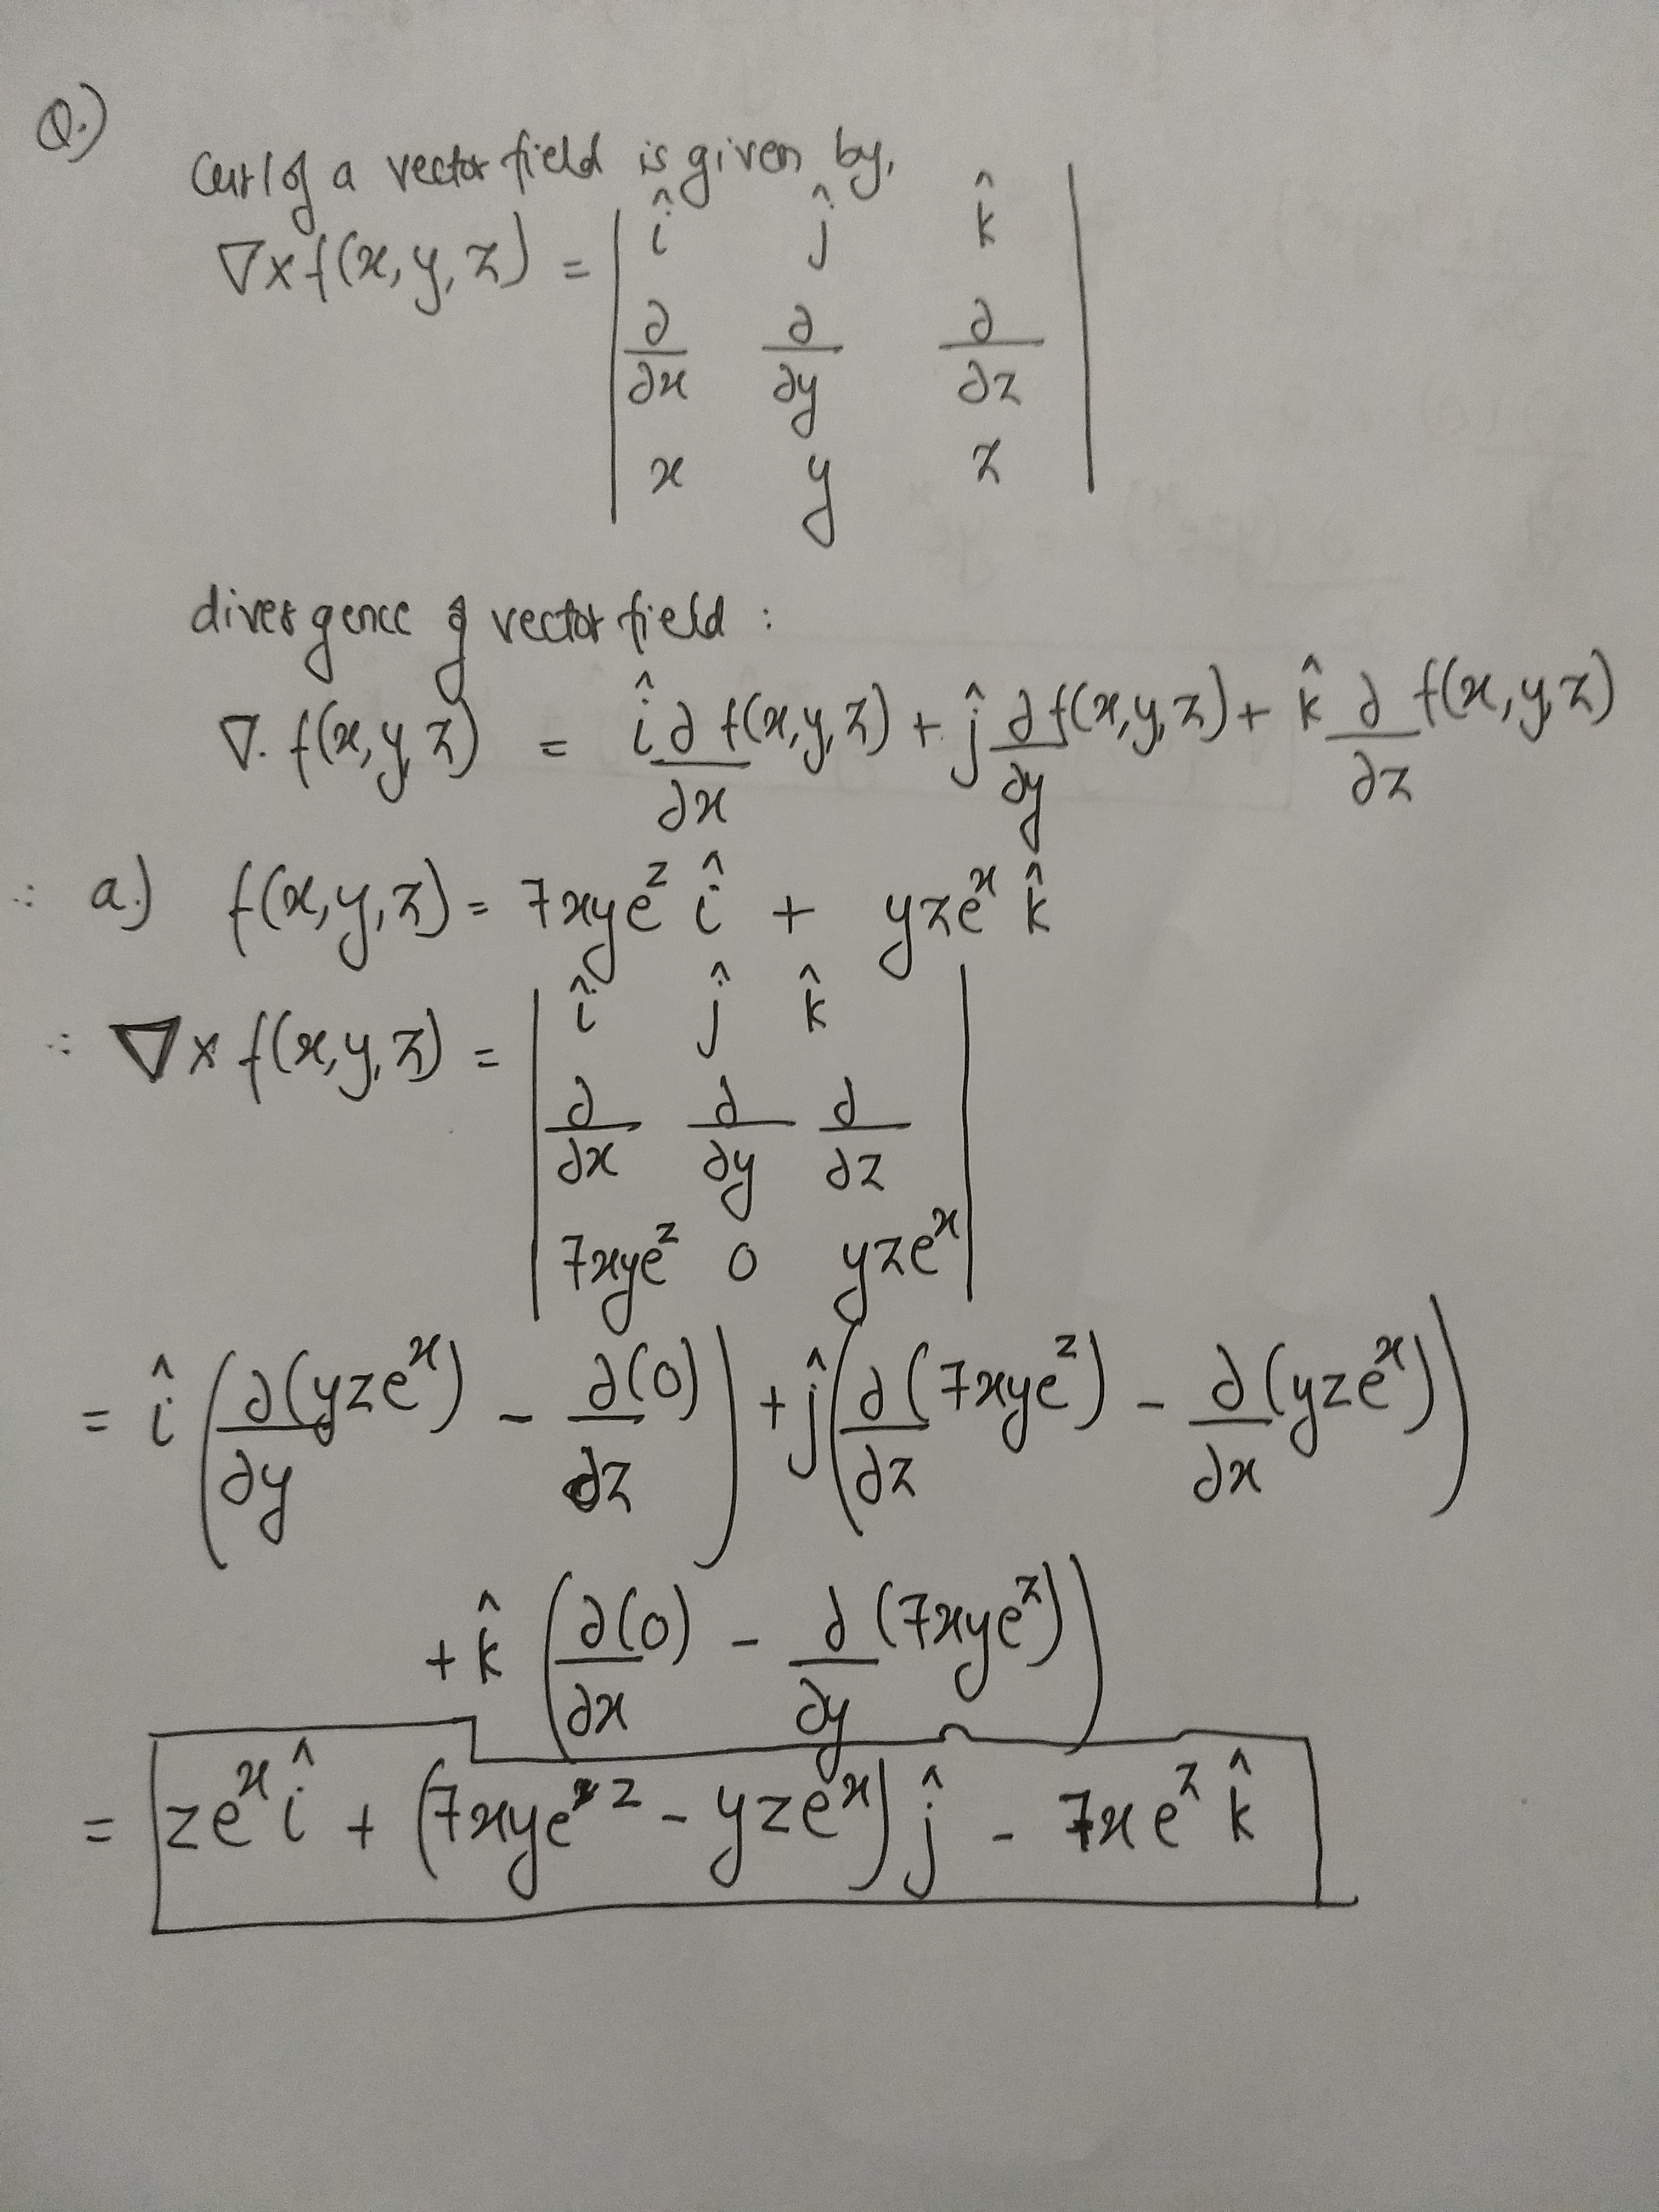 Q.)
Curl of a vector field is given by,
∇×f(x,y,z) = | î ĵ k̂ |
| ∂/∂x ∂/∂y ∂/∂z |
| x y z |
divergence of vector field :
∇. f(x,y,z) = î ∂/∂x f(x,y,z) + ĵ ∂/∂y f(x,y,z) + k̂ ∂/∂z f(x,y,z)
∴ a.) f(x,y,z) = 7xye^z î + yze^x k̂
∴ ∇× f(x,y,z) = | î ĵ k̂ |
| ∂/∂x ∂/∂y ∂/∂z |
| 7xye^z 0 yze^x |
= î (∂/∂y (yze^x) - ∂/∂z (0)) + ĵ (∂/∂z (7xye^z) - ∂/∂x (yze^x))
+ k̂ (∂/∂x (0) - ∂/∂y (7xye^z))
= ze^x î + (7xye^z - yze^x) ĵ - 7xe^z k̂